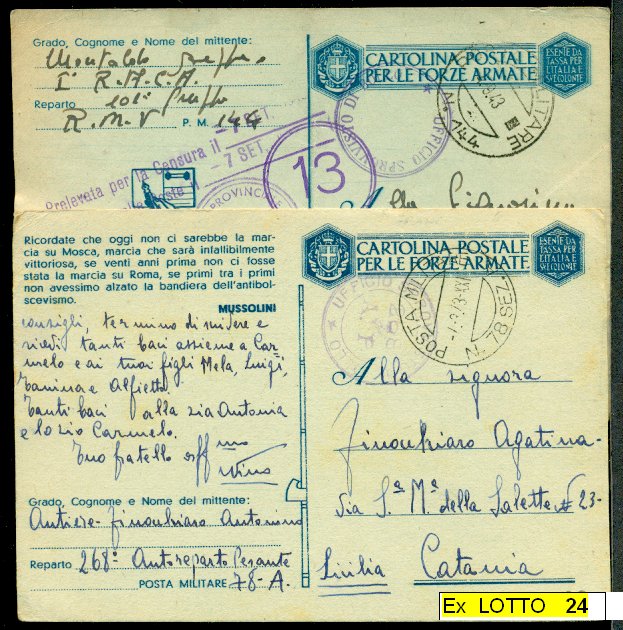 Grado, Cognome e Nome del mittente:
Montaldo
1° R.A.C.A.
Reparto 101° Gruppo
R.M.V P. M. 144
CARTOLINA POSTALE
PER LE FORZE ARMATE
ESENTE DA
TASSA PER
L'ITALIA E
SUE COLONIE
N. 144
Prelevata per la Censura il - 7 SET
- 7 SET
13
PROVINCIA
Alla Signorina
Ricordate che oggi non ci sarebbe la mar-
cia su Mosca, marcia che sarà infallibilmente
vittoriosa, se venti anni prima non ci fosse
stata la marcia su Roma, se primi tra i primi
non avessimo alzato la bandiera dell'antibol-
scevismo.
MUSSOLINI
consigli, termino di scrivere e
ricevi tanti baci assieme a Car-
melo e ai tuoi figli Mela, Luigi,
Tanina e Alfietto.
Tanti baci alla zia Antonia
e lo zio Carmelo.
Tuo fratello aff mo
Nino
Grado, Cognome e Nome del mittente:
Artiere Finocchiaro Antonino
Reparto 268° Autoreparto Pesante
POSTA MILITARE 78-A.
CARTOLINA POSTALE
PER LE FORZE ARMATE
ESENTE DA
TASSA PER
L'ITALIA E
SUE COLONIE
POSTA MILITARE N. 78 SEZ
Alla signora
Finocchiaro Agatina-
Via S.a M.a della Salette # 23-
Sicilia Catania
Ex LOTTO 24